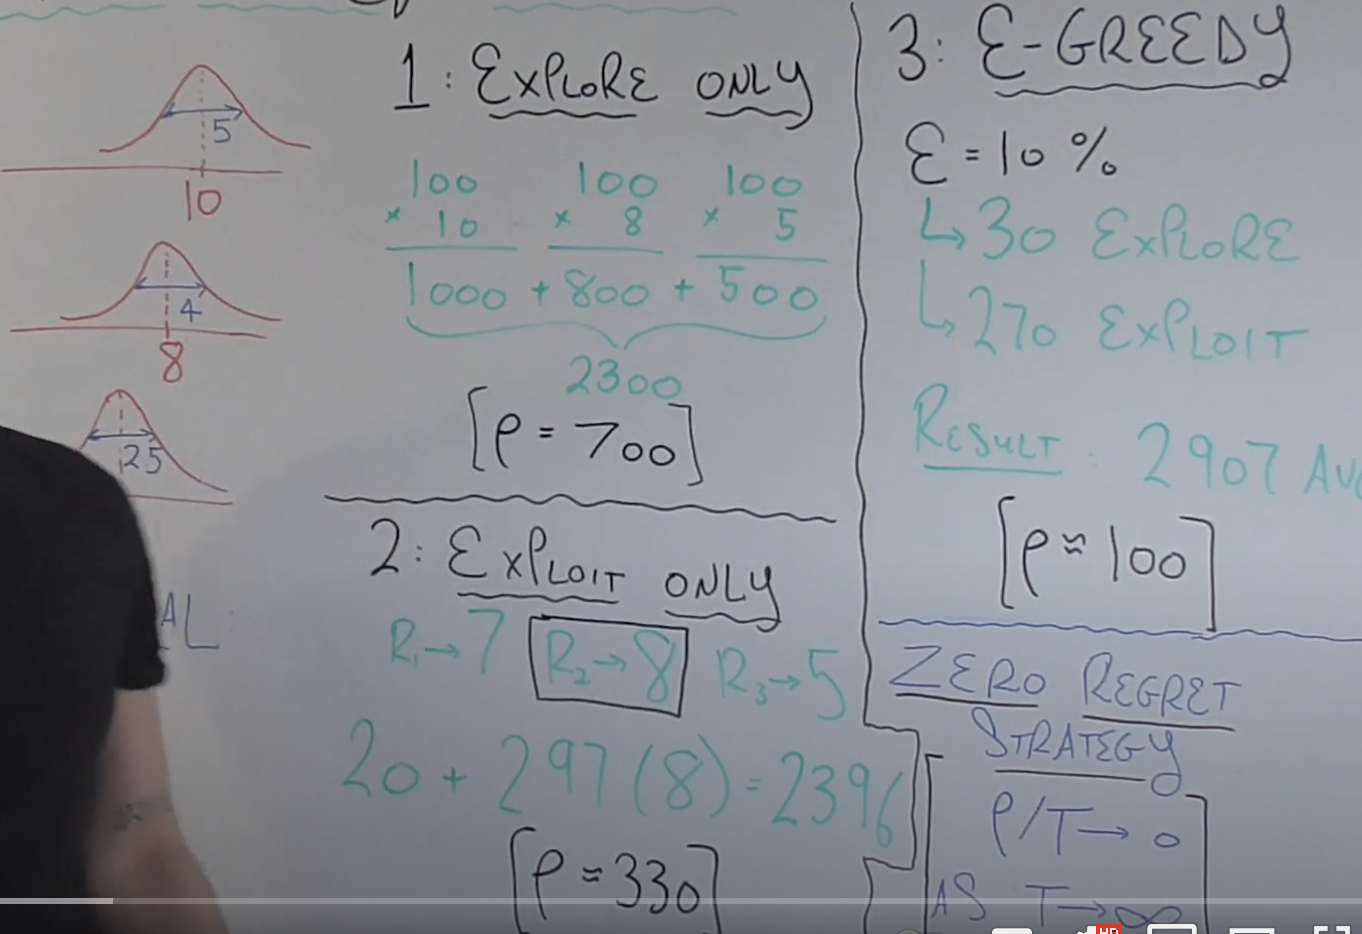 5
10
4
8
2.5
AL
1: EXPLORE ONLY
100 100 100
× 10 × 8 × 5
1000 + 800 + 500
2300
[ρ = 700]
2: EXPLOIT ONLY
R₁→7 R₂→8 R₃→5
20 + 297(8) = 2396
[ρ ≈ 330]
3: Ɛ-GREEDY
Ɛ = 10%
↳ 30 EXPLORE
↳ 270 EXPLOIT
RESULT: 2907 AVG
[ρ ≈ 100]
ZERO REGRET
STRATEGY
ρ/T → 0
AS T → ∞
HD